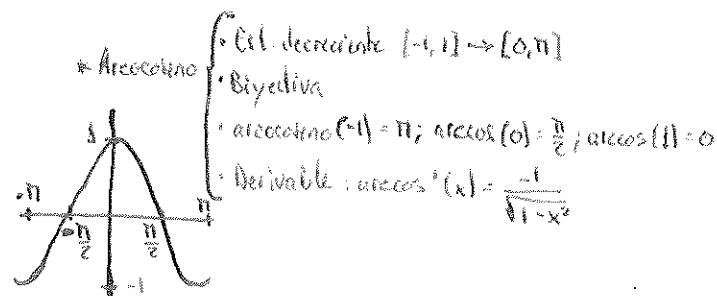 * Arcocoseno
· Est. decreciente [-1,1] → [0,π]
· Biyectiva
· arcocoseno(-1) = π; arccos(0) = π/2; arccos(1) = 0
· Derivable: arccos'(x) = -1/√(1-x²)
1
-π
-π/2
π/2
π
-1